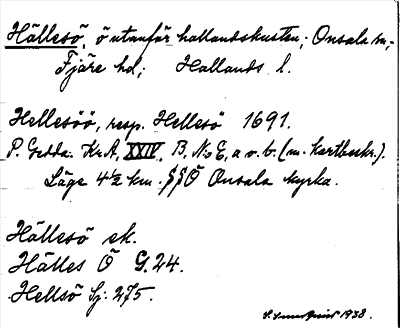 Hällesö, ö utanför hallandskusten; Onsala sn;
Fjäre hd; Hallands l.
Hellesöö, resp. Hellesö 1691.
P. Gedda. Kr.A, XXIV, B, N:o 6, a o. b. (m. kartbeskr.).
Läge 4½ km. SSÖ Onsala kyrka.
Hällesö ek.
Hälles Ö G.24.
Hellsö Sj: 275.
1938.